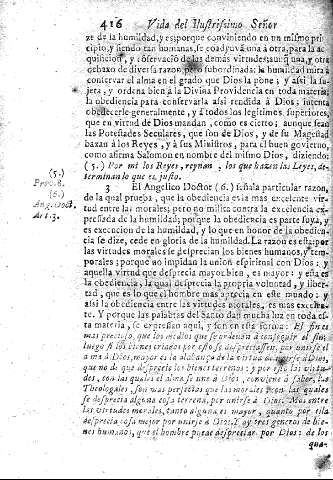 416 Vida del Ilustrissimo Señor
ze de la humildad, y es porque conviniendo en un mismo prin-
cipio, y siendo tan humanas, se coadyuva una à otra, para la ac-
quisicion, y observacion de las demàs virtudes; aunq̃ una, y otra
obra de diversa razon, pero subordinada: la humildad mira à
conservar el alma en el grado que Dios la pone; y assi la su-
jeta, y ordena bien à la Divina Providencia en toda materia:
la obediencia para conservarla assi rendida à Dios, intenta
obedecerle generalmente, y à todos los legitimos, superiores,
que en virtud de Dios mandan, como es cierto; aunque sean
las Potestades Seculares, que son de Dios, y de su Magestad
baxan à los Reyes, y à sus Ministros, para el buen govierno,
como afirma Salomon en nombre del mismo Dios, diziendo:
(5.) Por mi los Reyes, reynan, los que hazen las Leyes, de-
terminan lo que es justo.
(5.)
Prov. 8.
(6.)
Ang. Doct.
Art. 3.
3 El Angelico Doctor (6.) señala particular razon,
de la qual prueba, que la obediencia es la mas excelente vir-
tud entre las morales; pero no milita contra la excelencia ex-
pressada de la humildad; porque la obediencia es parte suya, y
es execucion de la humildad, y lo que en honor de la obedien-
cia se dize, cede en gloria de la humildad. La razon es esta: por
las virtudes morales se desprecian los bienes humanos, y tem-
porales; porque no impidan la union espiritual con Dios; y
aquella virtud que desprecia mayor bien, es mayor; y esta es
la obediencia, la qual desprecia la propria voluntad, y liber-
tad, que es lo que el hombre mas aprecia en este mundo; y
assi la obediencia entre las virtudes morales, es mas excelen-
te. Y porque las palabras del Santo dan mucha luz en toda es-
ta materia, se expressan aqui, y son en esta forma: El fin es
mas precioso, que los medios que se ordenan à conseguir el fin;
luego si los bienes criados por esto, se desprecian, por unirse el
alma à Dios, mayor es la alabança de la virtud de unirse à Dios,
que no de que desprecie los bienes terrenos; y por esto las virtu-
des, con las quales el alma se une à Dios, conviene à saber, las
Theologales, son mas perfectas que las morales, con las quales
se desprecia alguna cosa terrena, por unirse à Dios. Mas entre
las virtudes morales, tanto alguna es mayor, quanto por ella
desprecia cosa mejor por unirse à Dios: Y ay tres generos de bie-
nes humanos, que el hombre puede despreciar por Dios: de los
qua-